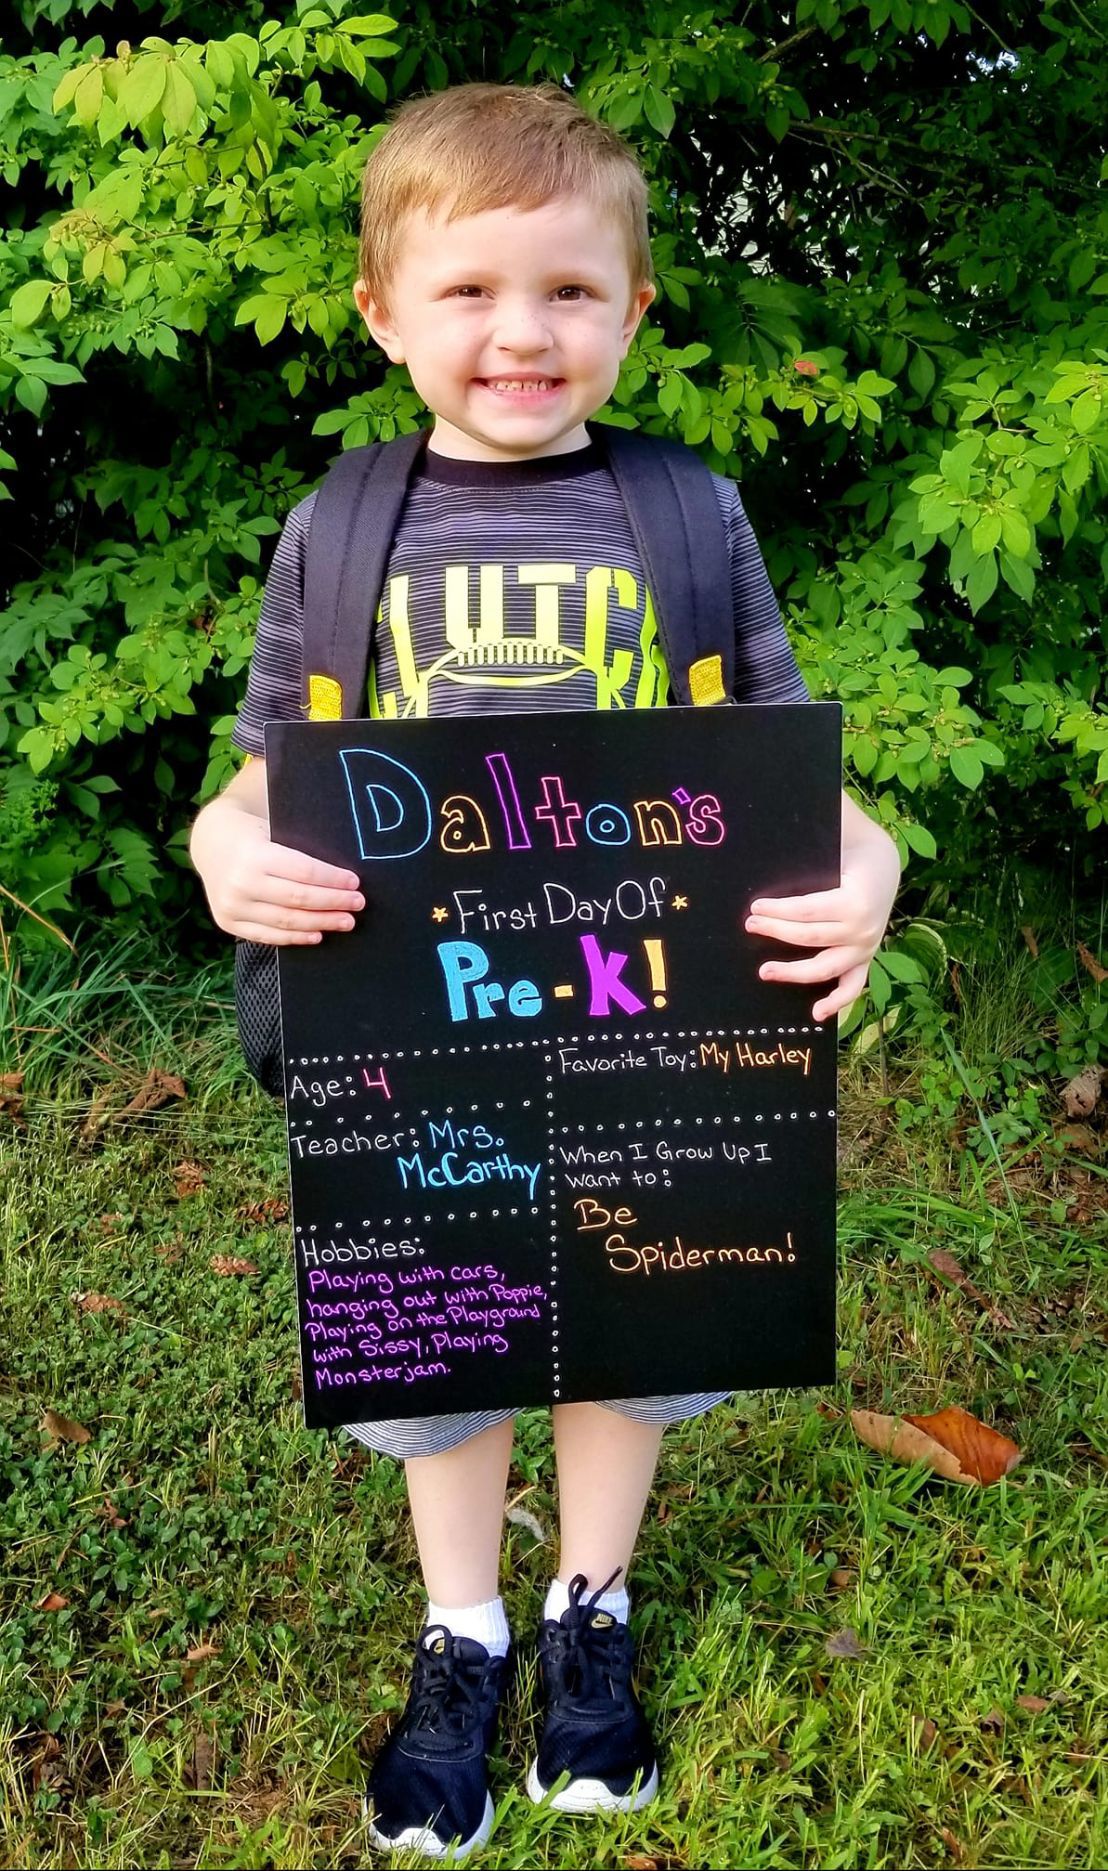 CLUTCH
Dalton's
First Day Of
Pre-K!
Age: 4
Teacher: Mrs.
McCarthy
Hobbies:
Playing with cars,
hanging out with Poppie,
Playing on the Playground
with Sissy, Playing
Monsterjam.
Favorite Toy: My Harley
When I Grow Up I
want to:
Be
Spiderman!
NIKE